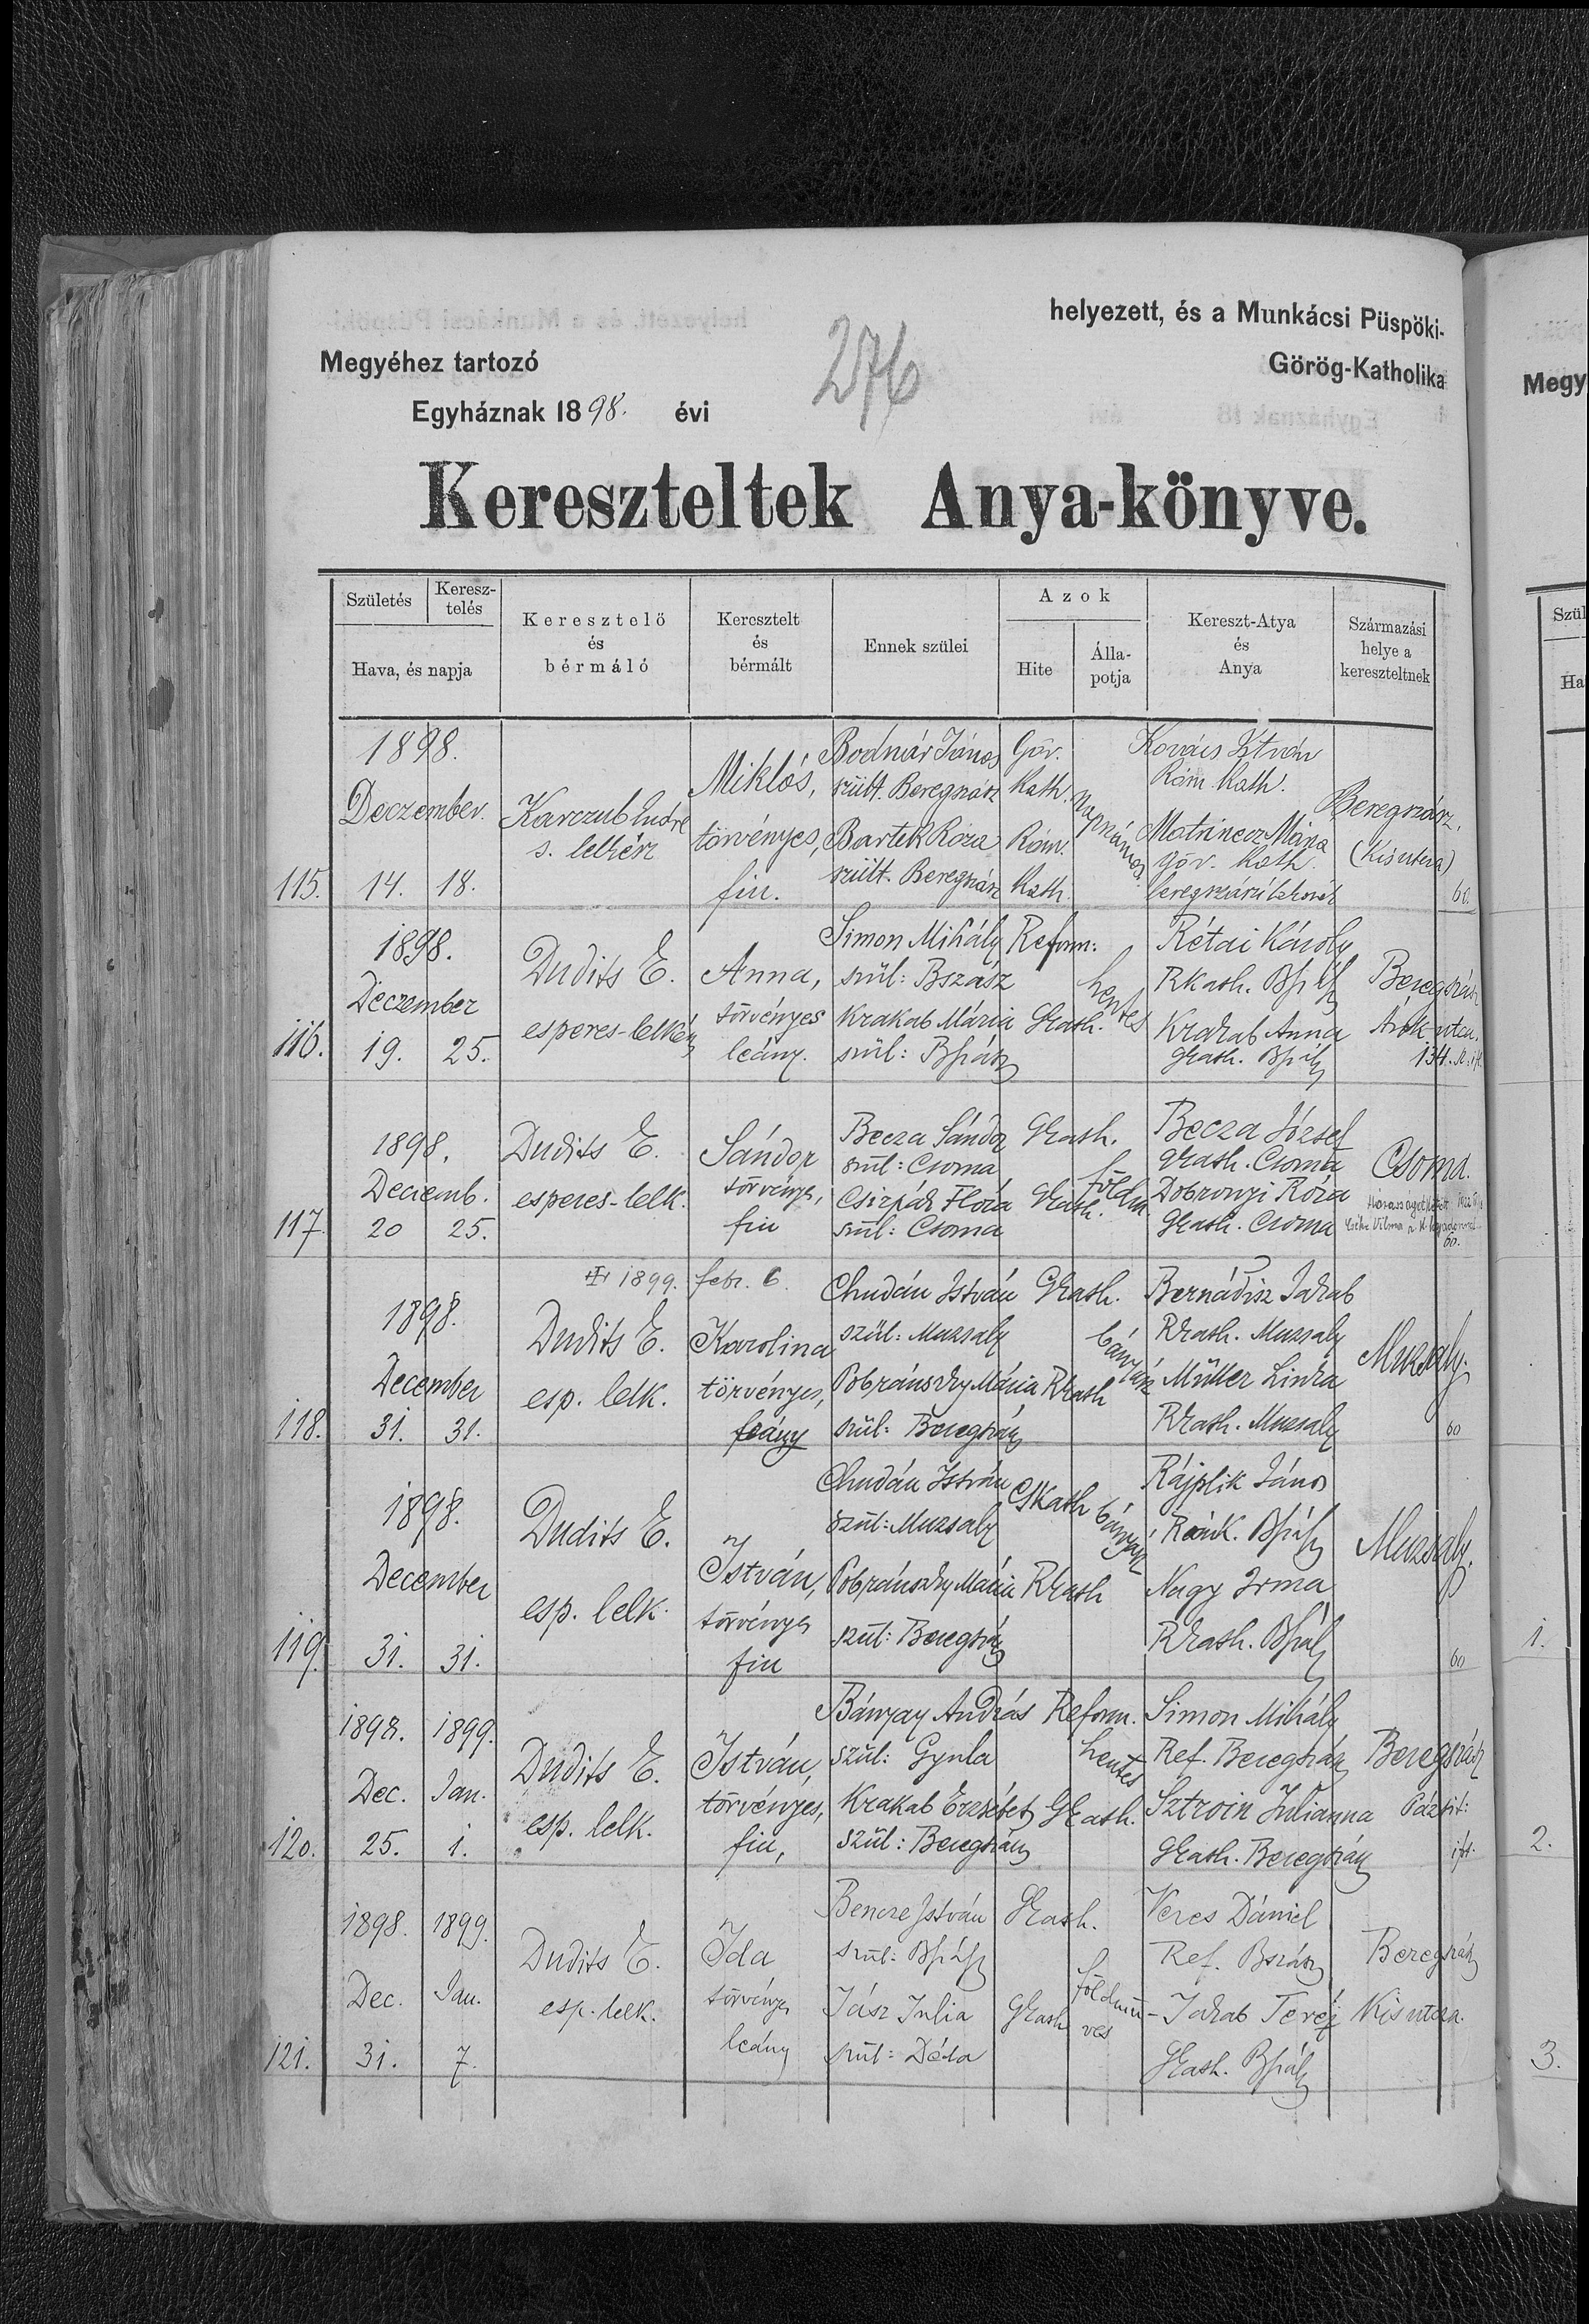 helyezett, és a Munkácsi Püspöki-
Megyéhez tartozó
Görög-Katholika
276
Egyháznak 1898. évi
Kereszteltek Anya-könyve.
Születés
Keresz-
telés
Hava, és napja
Keresztelő
és
bérmáló
Keresztelt
és
bérmált
Ennek szülei
Azok
Hite
Álla-
potja
Kereszt-Atya
és
Anya
Származási
helye a
kereszteltnek
115.
1898.
Deczember.
14. 18.
Karczub Endre
s. lelkész
Miklós,
törvényes,
fiu.
Bodnár János
szült. Beregszász
Bartek Róza
szült. Beregszász
Gör.
Kath.
Róm.
Kath.
napszámos
Kovács István
Róm. Kath.
Matrincz Mária
gör. Kath.
beregszászi lakosok
Beregszász,
(Kisutcza)
60.
116.
1898.
Deczember
19. 25.
Dudits E.
esperes-lelkész
Anna,
törvényes
leány.
Simon Mihály
szül: Bszász
Krakab Mária
szül: Bszász
Reform:
Gkath.
hentes
Rétai Károly
Rkath. Bszász
Krakab Anna
Gkath. Bszász
Beregszász
Árok-utca.
134.
117.
1898.
Decemb.
20 25.
Dudits E.
esperes-lelk.
Sándor
törvényes,
fiu
Becza Sándor
szül: Csoma
Csirpák Flóra
szül: Csoma
Gkath.
Gkath.
földm.
Becza József
Gkath. Csoma
Dobronyi Róza
Gkath. Csoma
Csoma.
60.
118.
1898.
December
31. 31.
1899. febr. 6.
Dudits E.
esp. lelk.
Karolina
törvényes,
leány
Chudán István
szül: Muzsaly
Pobránszky Mária
szül: Beregszász
Gkath.
Rkath
bányász
Bernádisz Jakab
Rkath. Muzsaly
Müller Linka
Rkath. Muzsaly
Muzsaly.
60
119.
1898.
December
31. 31.
Dudits E.
esp. lelk.
István,
törvényes
fiu
Chudán István
szül: Muzsaly
Pobránszky Mária
szül: Beregszász
Gkath
Rkath
bányász
Rájplik János
Bszász
Nagy Irma
Rkath. Bszász
Muzsaly.
60
120.
1898. 1899.
Dec. Jan.
25. 1.
Dudits E.
esp. lelk.
István,
törvényes,
fiu,
Bányay András
szül: Gyula
Krakab Erzsébet
szül: Beregszász
Reform.
Gkath.
hentes
Simon Mihály
Ref. Beregszász
Sztroin Julianna
Gkath. Beregszász
Beregszász
Pázsit:
1 ft.
121.
1898. 1899.
Dec. Jan.
31. 7.
Dudits E.
esp. lelk.
Ida
törvényes
leány
Bencze István
szül: Bszász
Jász Julia
szül: Déda
Gkath.
Gkath
földmű-
ves
Veres Dániel
Ref. Bszász
Jakab Teréz
Gkath. Bszász
Beregszász
Kis utcza.
Megy
Szül
Ha
1.
2.
3.